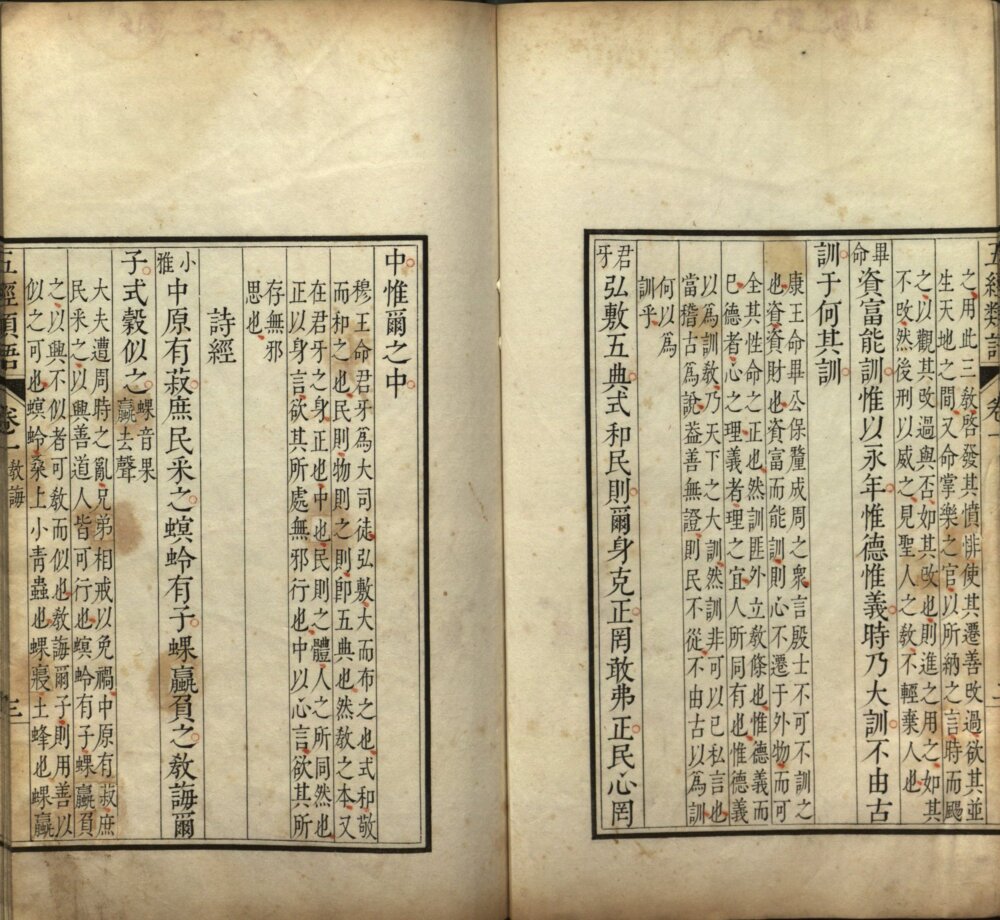 五經類語
卷一
之用此三敎啓發其憤悱使其遷善改過欲其並
生天地之間又命掌樂之官以所納之言時而颺
之以觀其改過與否如其改也則進之用之如其
不改然後刑以威之見聖人之敎不輕棄人也
畢命 資富能訓惟以永年惟德惟義時乃大訓不由古
訓于何其訓
康王命畢公保釐成周之衆言殷士不可不訓之
也資資財也資富而能訓則心不遷于外物而可
全其性命之正也然訓匪外立敎條也惟德義而
已德者心之理義者理之宜人所同有也惟德義
以爲訓敎乃天下之大訓然訓非可以已私言也
當稽古爲說葢善無證則民不從不由古以爲訓
何以為
訓乎
君牙 弘敷五典式和民則爾身克正罔敢弗正民心罔
中惟爾之中
穆王命君牙爲大司徒弘敷大而布之也式和敬
而和之也民則物則之則卽五典也然敎之本又
在君牙之身正也中也民則之體人之所同然也
正以身言欲其所處無邪行也中以心言欲其所
存無邪
思也
詩經
小雅 中原有菽庶民采之螟蛉有子蜾蠃負之敎誨爾
子式穀似之 蜾音果
蠃去聲
大夫遭周時之亂兄弟相戒以免禍中原有菽庶
民采之以興善道人皆可行也螟蛉有子蜾蠃負
之以興不似者可敎而似也敎誨爾子則用善以
似之可也螟蛉桑上小靑蟲也蜾蠃土蜂也蜾蠃
五經類語
卷一 敎誨
三